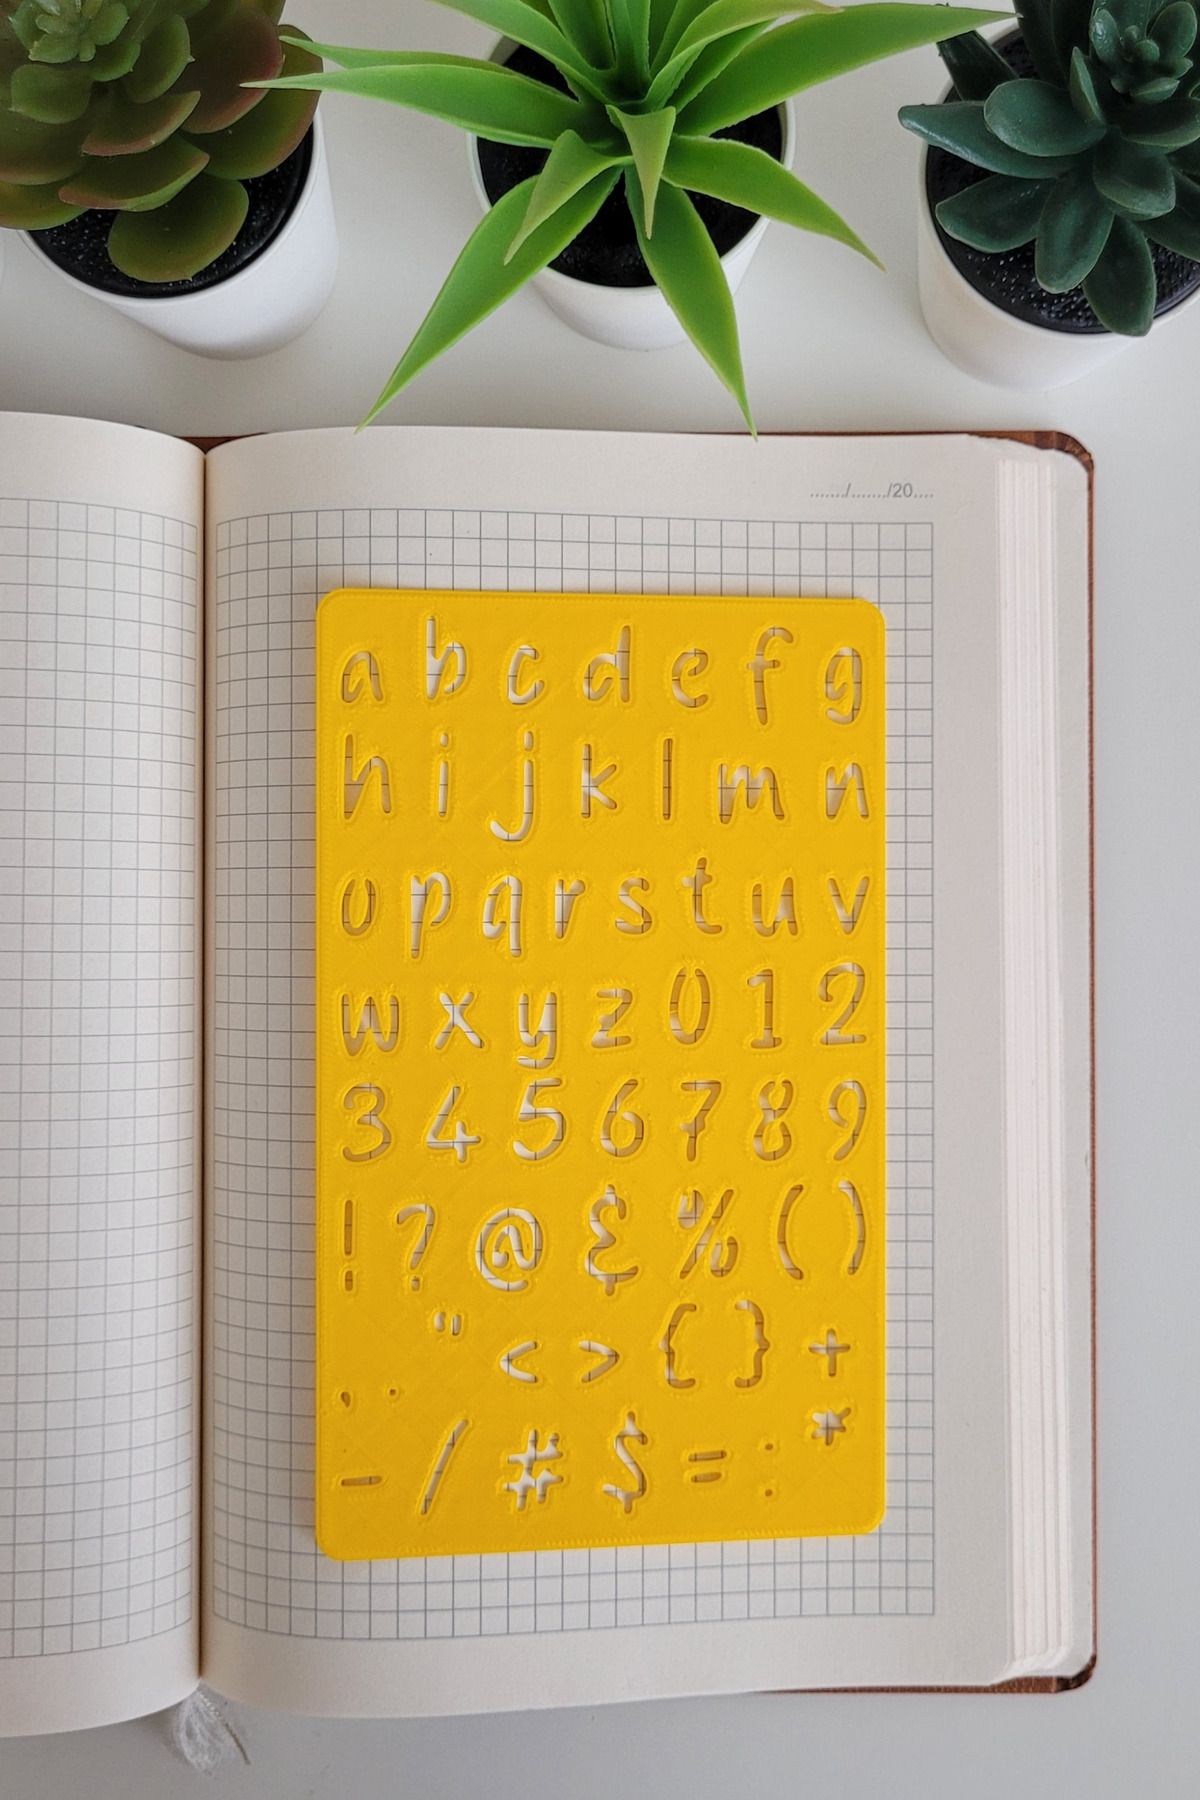 ......./......./20....
a b c d e f g
h i j k l m n
o p q r s t u v
w x y z 0 1 2
3 4 5 6 7 8 9
! ? @ & % ( )
, . " < > { } +
- / # $ = : *